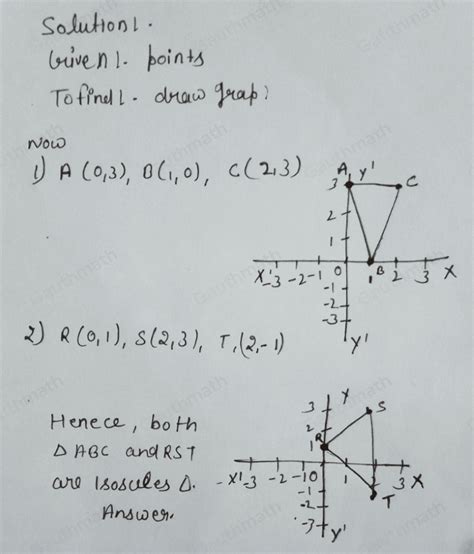 Solution!.
Given!. points
To find!. draw grap:
Now
1) A (0,3), B(1,0), C(2,3)
A Y'
3 C
2
1
X' -3 -2 -1 0 1 B 2 3 X
-1
-2
-3
Y'
2) R(0,1), S(2,3), T,(2,-1)
3 Y S
2
R 1
-X' -3 -2 -1 0 1 2 3 X
-1 T
-2
-3 Y'
Henece, both
Δ ABC and RST
are Isosules Δ.
Answer.
Gauthmath